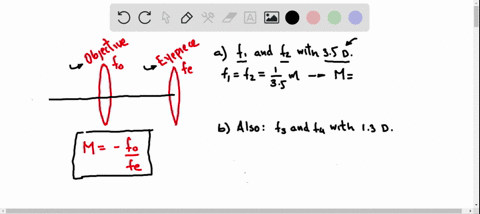 Objective
fo
Eyepiece
fe
M = - fo/fe
a) f1 and f2 with 3.5 D.
f1 = f2 = 1/3.5 m → M=
b) Also: f3 and f4 with 1.3 D.